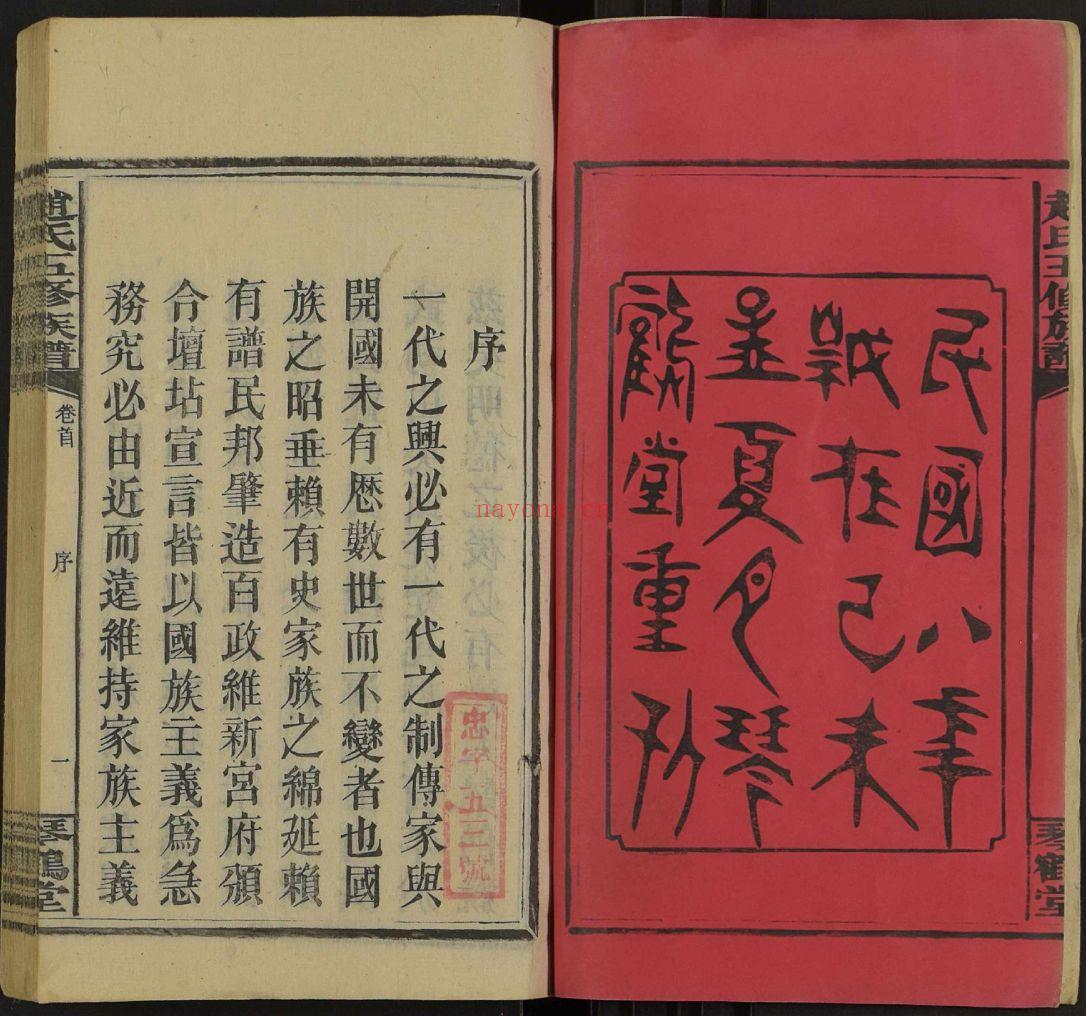 趙氏五修族譜
琴鶴堂
民國八年
歲在己未
孟夏月琴
鶴堂重刊
序
一代之興必有一代之制傳家與
開國未有歷數世而不變者也國
族之昭垂賴有史家族之綿延賴
有譜民邦肇造百政維新宮府頒
合壇坫宣言皆以國族主義爲急
務究必由近而遠維持家族主義
忠字五三號
趙氏五修族譜
卷首
序
一
琴鶴堂
nayona.cn